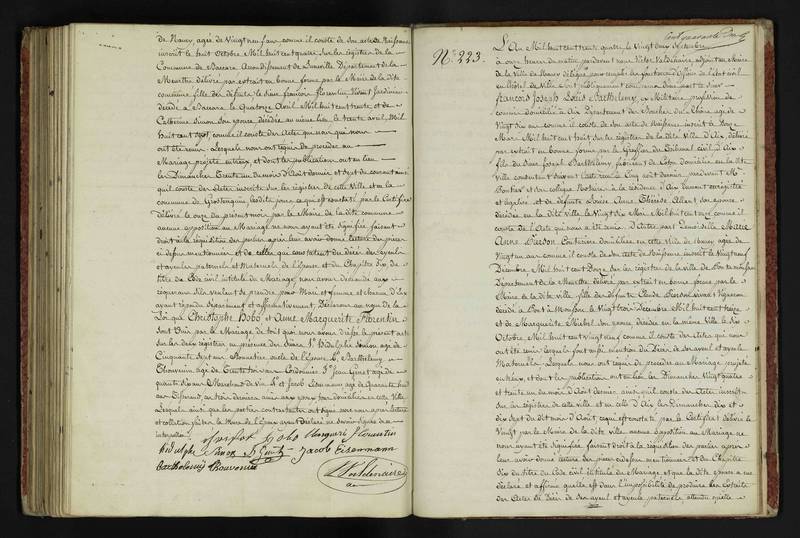 de Nancy, agée de Vingt neuf ans comme il conste de son acte de Naissance
inscrit le huit Octobre Mil huit cent quatre sur les registres de la
Commune de Baccara Arrondissement de Lunéville Département de la
Meurthe délivré par extrait en bonne forme par le Maire de la dite
commune fille des défunts le Sieur françois florentin Vivant Jardinier
décédé à Baccara le Quatorze Avril Mil huit cent trente, et de
Catherine Simon son épouse décédée au même lieu le trente avril Mil
huit cent comme il conste des Actes qui nous
ont été remis. Lesquels nous ont requis de procéder au
Mariage projetté entr'eux, et dont les publications ont eu lieu
les Dimanches Trente un du mois d'Août dernier et Sept du courant ainsi
qu'il conste des Actes inscrits sur les registres de cette Ville et en la
commune de ce qui est constaté par le Certificat
délivré le onze du présent mois par le Maire de la dite commune
aucune opposition au Mariage ne nous ayant été signifiée faisant
droit à la réquisition des parties après leur avoir donné lecture des pièces
ci dessus mentionnées et de celles qui constatent du décès des ayeuls
et ayeules paternels et Maternels de l'épouse et du Chapitre Six du
titre du Code civil intitulé du Mariage, nous avons demandé aux
requérans s'ils veulent se prendre pour Mari et femme et chacun d'eux
ayant répondu séparément et affirmativement, Déclarons au nom de la
Loi que Christophe Hobo et Anne Marguerite Florentin
sont Unis par le Mariage de tout quoi nous avons dressé le présent acte
sur les deux registres en présence des Sieurs
Cinquante Sept ans Bonnetier oncle de l'épouse
agé de Trente trois ans Cordonnier Jean
quarante six ans Marchand de Vin et Jacob Eisenmann agé de Quarante huit
ans
Lesquels ainsi que les parties contractantes ont signé avec nous après lecture
et collation faites
interpellée
christof Hobo Margueri florentin
hidulphe Simon Jacob Eisenmann
Barthelemy Bouvenier
Cent quarante
N.º 223.
L'An Mil huit cent trente quatre le Vingt deux Septembre
à onze heures du matin pardevant nous Victor Valdenaire, adjoint au Maire
de la Ville de Nancy délégué pour remplir les fonctions d'Officier de l'état civil
en l'hôtel de Ville et publiquement comparurent d'une part le Sieur
francois Joseph Louis Barthelemy, ex Militaire, profession de
comme domicilié à Aix Département des Bouches du Rhône agé de
Vingt Six ans comme il conste de son acte de Naissance inscrit le Douze
Mars Mil huit cent huit sur les registres de la dite Ville d'Aix, délivré
par extrait en bonne forme par le Greffier du Tribunal civil d'Aix
fils du Sieur Joseph Barthelemy, domicilié en la dite
Ville consentant suivant l'acte reçu le Cinq août dernier pardevant Me.
Bontier et son collègue Notaires à la résidence d'Aix dûment enregistré
et légalisé et de défunte Louise Anne Thérèse Allard son épouse
décédée en la dite Ville le Vingt Six Mai Mil huit cent onze comme il
conste de l'Acte qui nous a été remis. D'Autre part Demoiselle Marie
Anne Person Couturière domiciliée en cette Ville de Nancy agée de
Vingt un ans comme il conste de son acte de Naissance inscrit le Vingt neuf
Décembre Mil huit cent Douze sur les registres de la ville de Pont à Mousson
Département de la Meurthe délivré par extrait en bonne forme par le
Maire de la dite ville, fille des défunts Claude Person Vivant Vigneron
décédé à Pont à Mousson le Vingt trois Décembre Mil huit cent treize
et de Marguerite Michel son épouse décédée en la même Ville le Dix
Octobre, Mil huit cent vingt neuf, comme il conste des Actes qui nous
ont été remis lesquels font aussi mention du Décès de ses ayeul et ayeule
Maternels. Lesquels nous ont requis de procéder au Mariage projetté
entr'eux, et dont les publications ont eu lieu les Dimanches Vingt quatre
et trente un du mois d'Août dernier ainsi qu'il conste des Actes inscrits
sur les registres de cette ville et en celle d'Aix les Dimanches dix et
dix sept du dit mois d'Août, ce qui est constaté par le Certificat délivré le
Vingt par le Maire de la dite ville aucune opposition au Mariage ne
nous ayant été signifiée faisant droit à la réquisition des parties après
leur avoir donné lecture des pièces ci dessus mentionnées et du Chapitre
Six du titre du Code civil intitulé du Mariage et que la dite épouse a aussi
déclaré et affirmé qu'elle est dans l'impossibilité de produire les Extraits
des Actes de Décès de ses ayeul et ayeule paternels, attendu qu'elle